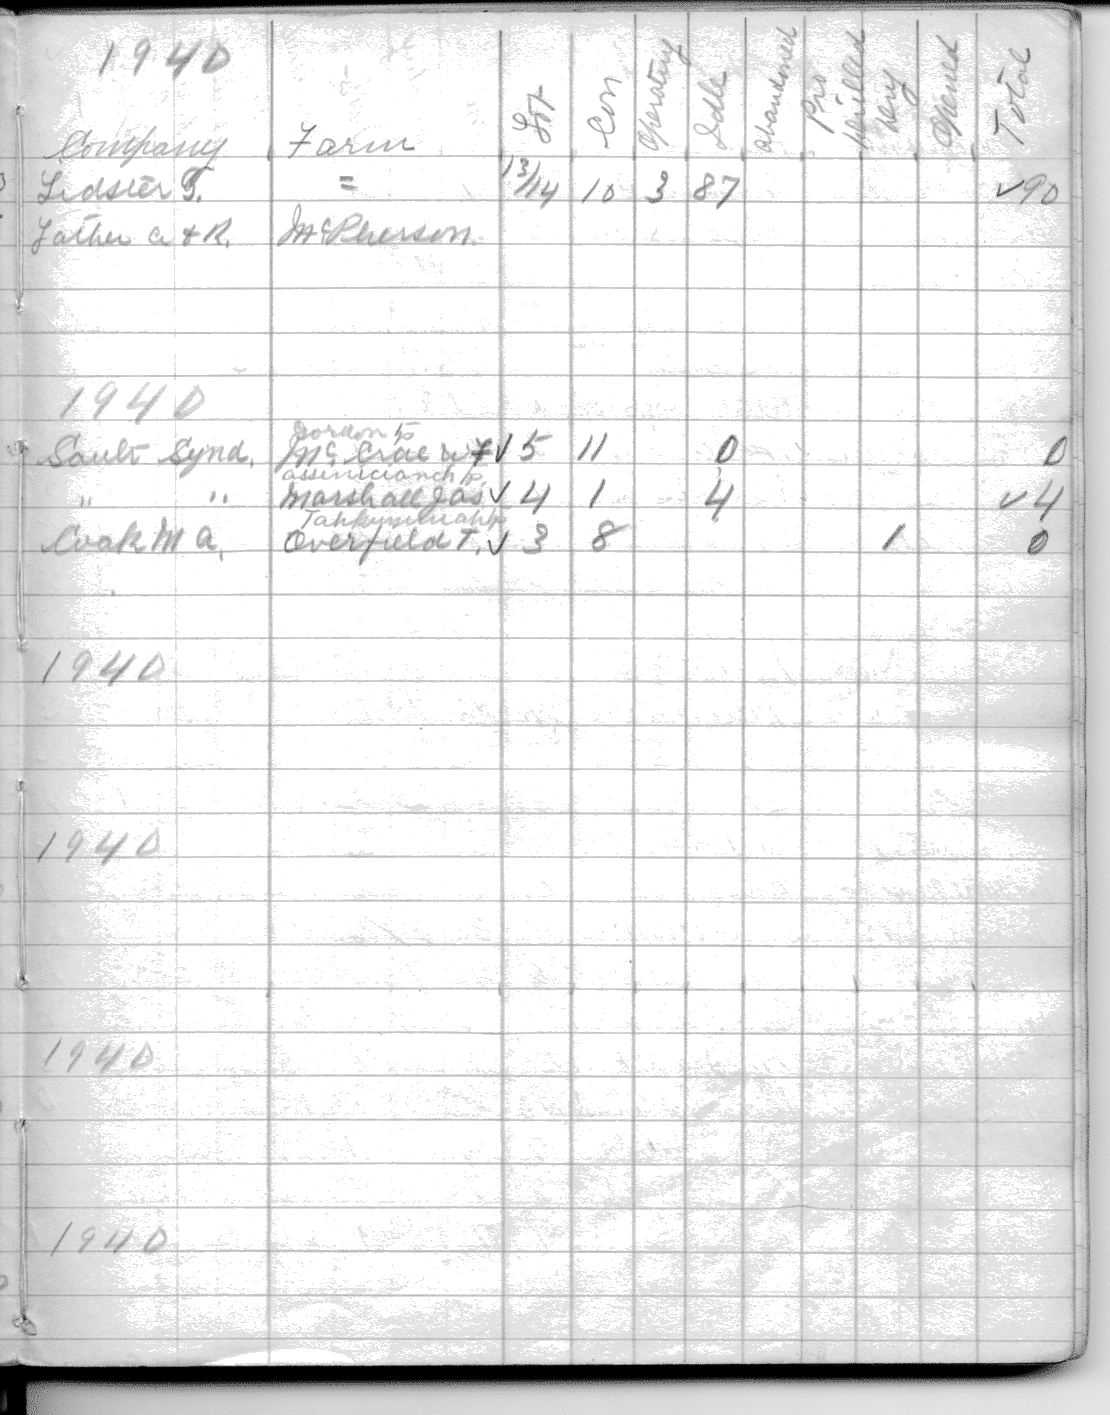 1940
Company Farm Lot Con Operating Idle Abandoned Pro Drilled Dry Opened Total
Lidster T. = 13/14 10 3 87 ✓90
A & R. McPherson
1940
Gordon tp
Sault Synd. McCrae W ✓ 5 11 0 0
" " Marshall Jas ✓ 4 1 4 ✓4
Cook M A. Overfield T. ✓ 3 8 1 0
1940
1940
1940
1940